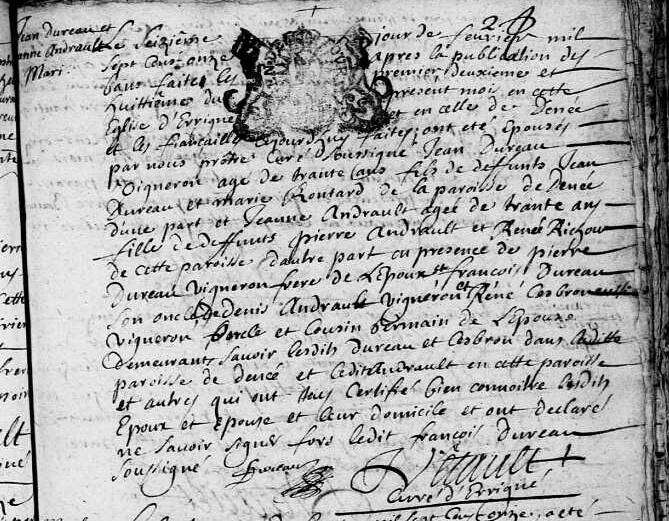 Jean Dureau et
Jeanne Andrault
Mari.
Le Seizième jour de feuvrier mil
sept cens onze apres la publication des
bans faites les premier deuxieme et
huittieme du present mois en cette
Eglise d'Errigné et en celles de Denée
et les fiancailles cejourdhuy faites, ont eté Epousés
par nous pretre Curé soussigné Jean Dureau
Vigneron agé de trante ans fils de deffunts Jean
Dureau et marie Rontard de la paroisse de Denée
d'une part et Jeanne Andrault agée de trante ans
fille de deffunts pierre Andrault et Renée Richou
de cette paroisse d'autre part en presence de pierre
Dureau vigneron frere de L'Epoux et francois Dureau
son oncle de Denis Andrault vigneron et René Cesbron
vigneron oncle et Cousin Germain de L'Epouze
demeurants savoir lesdits Dureau et Cesbron dans laditte
paroisse de Denée et ledit Andrault en cette paroisse
et autres qui ont tous Certifié bien connoitre lesdits
Epoux et Epouse et leur domicile et ont declaré
ne savoir signer fors ledit francois Dureau
soussigné
Dureau
Curé d'Errigné